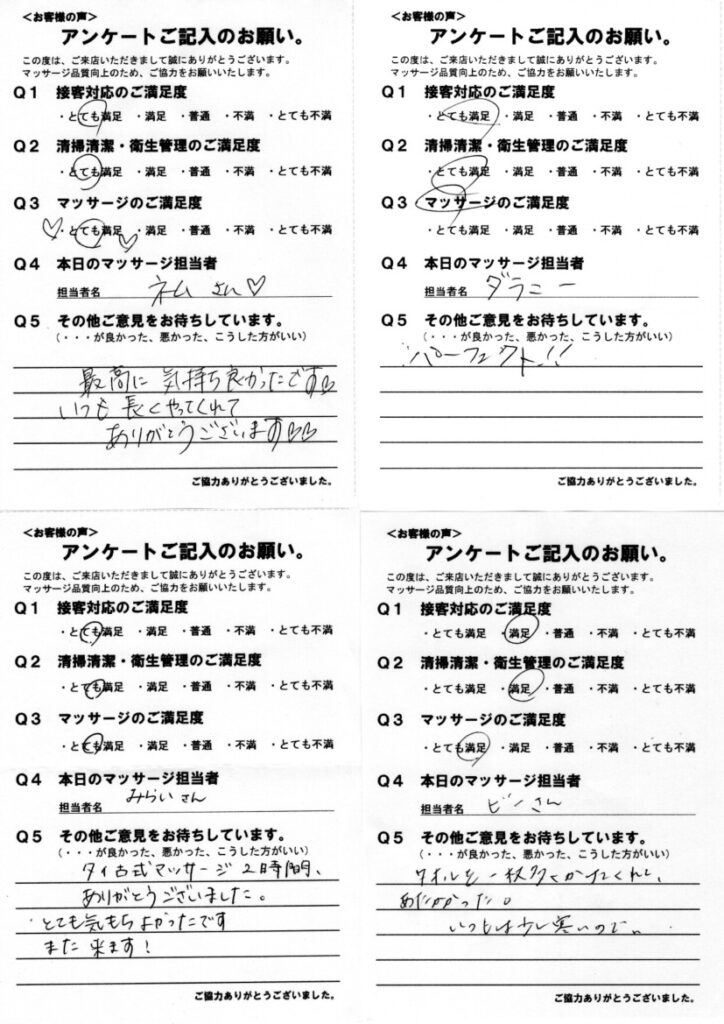 ＜お客様の声＞
アンケートご記入のお願い。
この度は、ご来店いただきまして誠にありがとうございます。
マッサージ品質向上のため、ご協力をお願いいたします。
Q1 接客対応のご満足度
・とても満足 ・満足 ・普通 ・不満 ・とても不満
Q2 清掃清潔・衛生管理のご満足度
・とても満足 ・満足 ・普通 ・不満 ・とても不満
Q3 マッサージのご満足度
♡・とても満足♡ ・満足 ・普通 ・不満 ・とても不満
Q4 本日のマッサージ担当者
担当者名 ネム さん♡
Q5 その他ご意見をお待ちしています。
（・・・が良かった、悪かった、こうした方がいい）
最高に 気持ち良かったです♡♡
いつも 長くやってくれて
ありがとうございます♡♡
ご協力ありがとうございました。
＜お客様の声＞
アンケートご記入のお願い。
この度は、ご来店いただきまして誠にありがとうございます。
マッサージ品質向上のため、ご協力をお願いいたします。
Q1 接客対応のご満足度
・とても満足 ・満足 ・普通 ・不満 ・とても不満
Q2 清掃清潔・衛生管理のご満足度
・とても満足 ・満足 ・普通 ・不満 ・とても不満
Q3 マッサージのご満足度
・とても満足 ・満足 ・普通 ・不満 ・とても不満
Q4 本日のマッサージ担当者
担当者名 ダラニー
Q5 その他ご意見をお待ちしています。
（・・・が良かった、悪かった、こうした方がいい）
パーフェクト!!
ご協力ありがとうございました。
＜お客様の声＞
アンケートご記入のお願い。
この度は、ご来店いただきまして誠にありがとうございます。
マッサージ品質向上のため、ご協力をお願いいたします。
Q1 接客対応のご満足度
・とても満足 ・満足 ・普通 ・不満 ・とても不満
Q2 清掃清潔・衛生管理のご満足度
・とても満足 ・満足 ・普通 ・不満 ・とても不満
Q3 マッサージのご満足度
・とても満足 ・満足 ・普通 ・不満 ・とても不満
Q4 本日のマッサージ担当者
担当者名 みらいさん
Q5 その他ご意見をお待ちしています。
（・・・が良かった、悪かった、こうした方がいい）
タイ古式マッサージ 2時間、
ありがとうございました。
とても気もちよかったです
また 来ます！
ご協力ありがとうございました。
＜お客様の声＞
アンケートご記入のお願い。
この度は、ご来店いただきまして誠にありがとうございます。
マッサージ品質向上のため、ご協力をお願いいたします。
Q1 接客対応のご満足度
・とても満足 ・満足 ・普通 ・不満 ・とても不満
Q2 清掃清潔・衛生管理のご満足度
・とても満足 ・満足 ・普通 ・不満 ・とても不満
Q3 マッサージのご満足度
・とても満足 ・満足 ・普通 ・不満 ・とても不満
Q4 本日のマッサージ担当者
担当者名 ビンさん
Q5 その他ご意見をお待ちしています。
（・・・が良かった、悪かった、こうした方がいい）
タオルを一枚多くかけてくれて、
あたたかった。
いつもは少し寒いので。。
ご協力ありがとうございました。